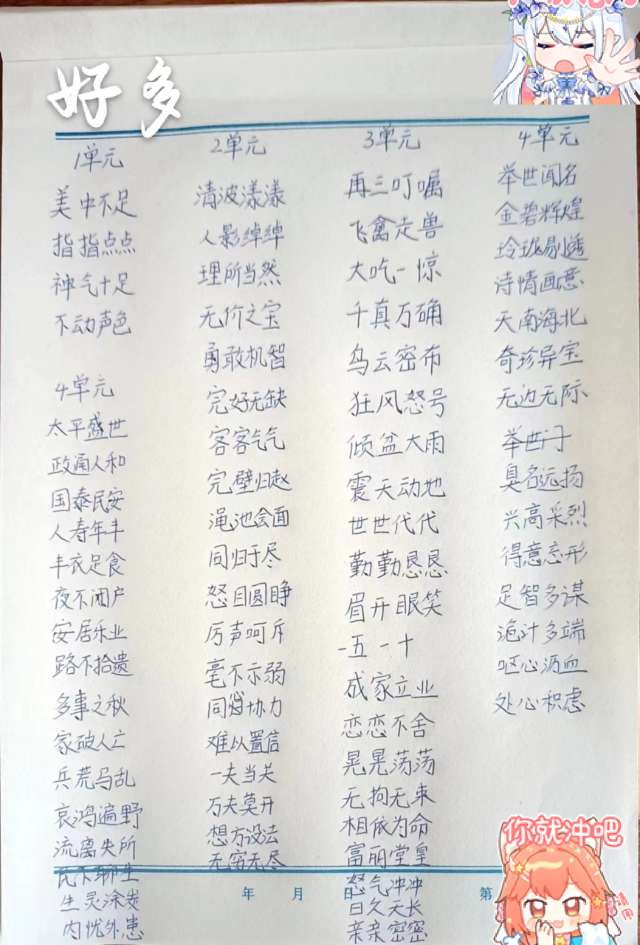 好多
1单元
美中不足
指指点点
神气十足
不动声色
4单元
太平盛世
政通人和
国泰民安
人寿年丰
丰衣足食
夜不闭户
安居乐业
路不拾遗
多事之秋
家破人亡
兵荒马乱
哀鸿遍野
流离失所
民不聊生
生灵涂炭
内忧外患
2单元
清波漾漾
人影绰绰
理所当然
无价之宝
勇敢机智
完好无缺
客客气气
完璧归赵
渑池会面
同归于尽
怒目圆睁
厉声呵斥
毫不示弱
同协力
难以置信
一夫当关
万夫莫开
想方设法
无穷无尽
3单元
再三叮嘱
飞禽走兽
大吃一惊
千真万确
乌云密布
狂风怒号
倾盆大雨
震天动地
世世代代
勤勤恳恳
眉开眼笑
一五一十
成家立业
恋恋不舍
晃晃荡荡
无拘无束
相依为命
富丽堂皇
怒气冲冲
日久天长
亲亲密密
4单元
举世闻名
金碧辉煌
玲珑剔透
诗情画意
天南海北
奇珍异宝
无边无际
举世门
臭名远扬
兴高采烈
得意忘形
足智多谋
诡计多端
呕心沥血
处心积虑
年 月 日
第
你就冲吧